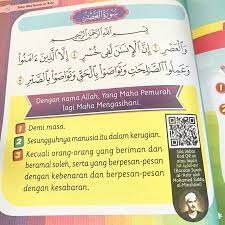 سُورَةُ الْعَصْرِ
بِسْمِ اللَّهِ الرَّحْمَٰنِ الرَّحِيمِ
وَالْعَصْرِ ۝١ إِنَّ الْإِنسَانَ لَفِي خُسْرٍ ۝٢ إِلَّا الَّذِينَ آمَنُوا
وَعَمِلُوا الصَّالِحَاتِ وَتَوَاصَوْا بِالْحَقِّ وَتَوَاصَوْا بِالصَّبْرِ ۝٣
Dengan nama Allah, Yang Maha Pemurah
lagi Maha Mengasihani.
1 Demi masa.
2 Sesungguhnya manusia itu dalam kerugian.
3 Kecuali orang-orang yang beriman dan
beramal soleh, serta yang berpesan-pesan
dengan kebenaran dan berpesan-pesan
dengan kesabaran.
Sila imbas
Kod QR ini
atau layari